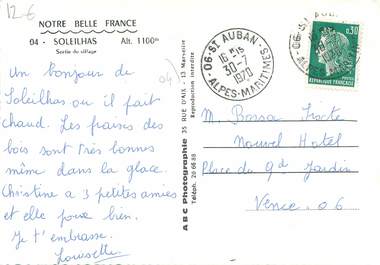 12-6
NOTRE BELLE FRANCE
04 - SOLEILHAS Alt. 1100m
Sortie du village
(04)
Un bonjour de
Soleilhas ou il fait
chaud. Les fraises des
bois sont très bonnes
même dans la glace.
Christine a 3 petites amies
et elle joue bien.
Je t'embrasse.
Lousette
ABC Photographie 35 RUE D'AIX - 13 Marseille
Téléph. 20 66 88 Reproduction interdite
06 - ST AUBAN
16 H15
30-7
1970
ALPES-MARITIMES
06-ST AUB
AL
0,30
REPUBLIQUE FRANCAISE
M. Bossa
Nouvel Hotel
Place du Gd Jardin
Vence. 06